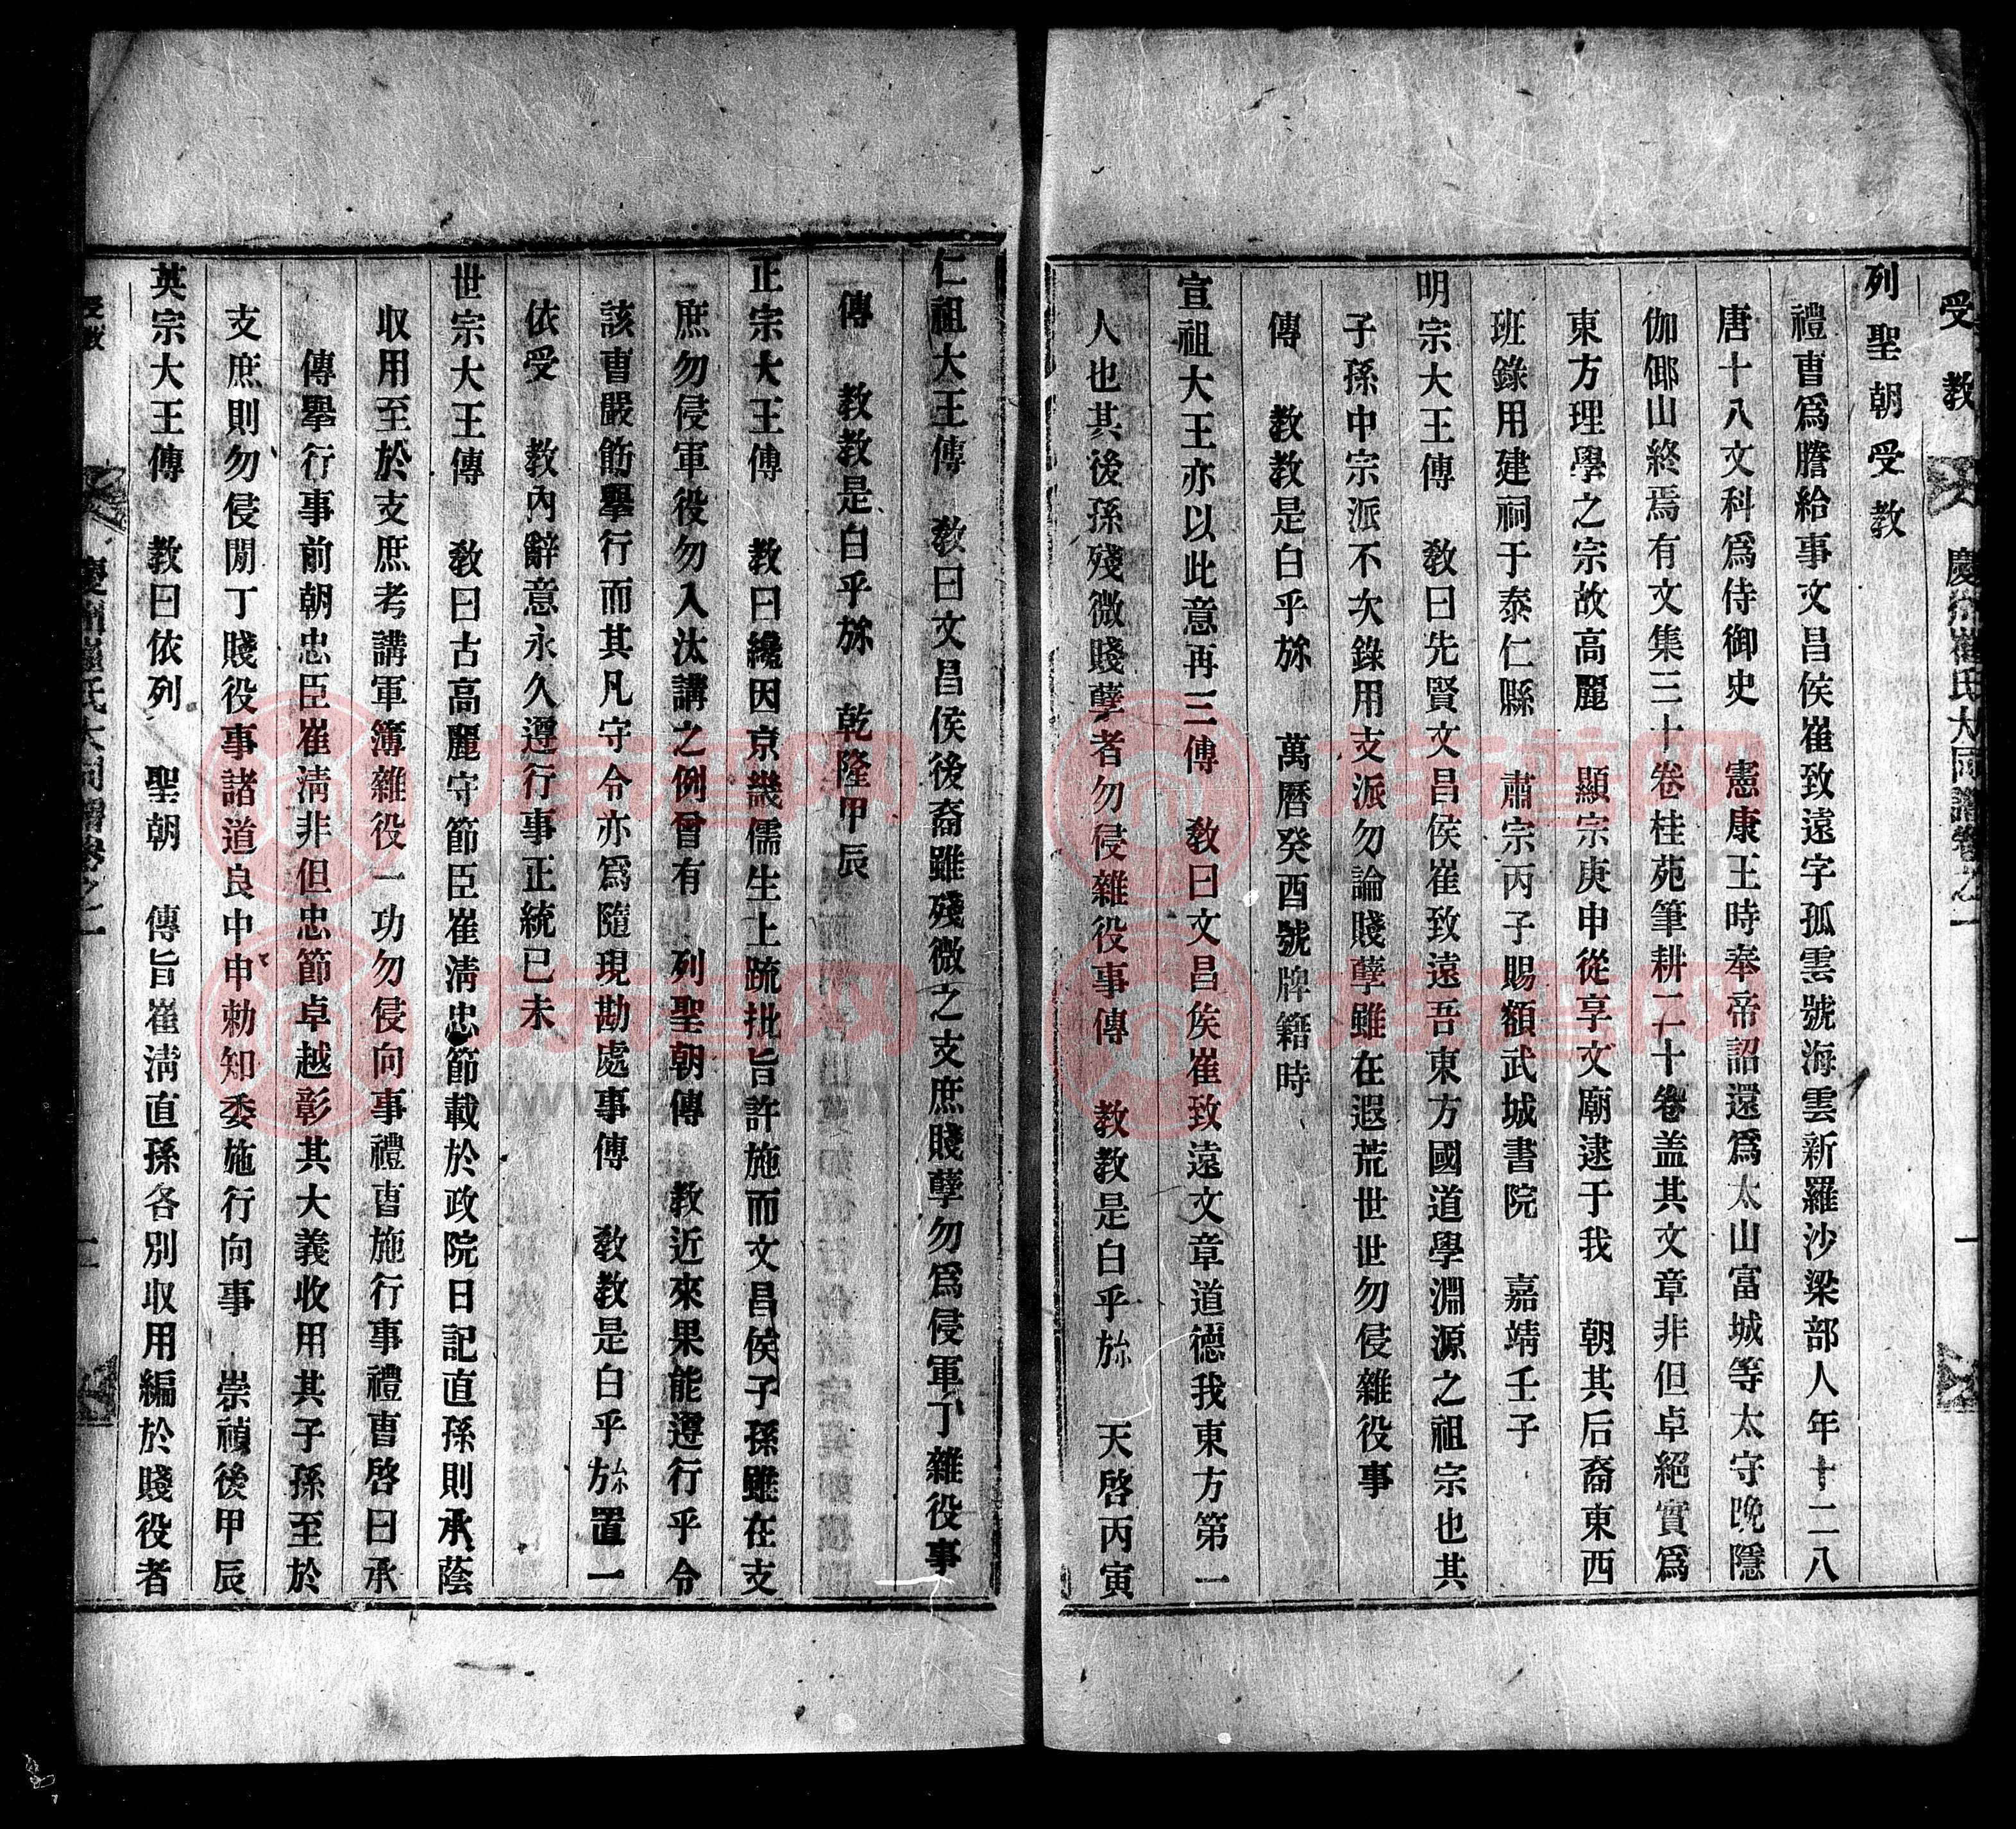 受教 慶州崔氏大同譜卷之一 一
列聖朝受教
禮曹爲謄給事文昌侯崔致遠字孤雲號海雲新羅沙梁部人年十二八
唐十八文科爲侍御史 憲康王時奉帝詔還爲太山富城等太守晚隱
伽倻山終焉有文集三十卷桂苑筆耕二十卷盖其文章非但卓絕實爲
東方理學之宗故高麗 顯宗庚申從享文廟逮于我 朝其后裔東西
班錄用建祠于泰仁縣 肅宗丙子賜額武城書院 嘉靖壬子
明宗大王傳 教曰先賢文昌侯崔致遠吾東方國道學淵源之祖宗也其
子孫中宗派不次錄用支派勿論賤孽雖在遐荒世世勿侵雜役事
傳 教教是白乎旀 萬曆癸酉號牌籍時
宣祖大王亦以此意再三傳 教曰文昌侯崔致遠文章道德我東方第一
人也其後孫殘微賤孽者勿侵雜役事傳 教教是白乎旀 天啓丙寅
仁祖大王傳 教曰文昌侯後裔雖殘微之支庶賤孽勿爲侵軍丁雜役事
傳 教教是白乎旀 乾隆甲辰
正宗大王傳 教曰纔因京畿儒生上疏批旨許施而文昌侯子孫雖在支
庶勿侵軍役勿入汰講之例曾有 列聖朝傳 教近來果能遵行乎令
該曹嚴飭擧行而其凡守令亦爲隨現勘處事傳 教教是白乎旀置一
依受 教內辭意永久遵行事正統已未
世宗大王傳 教曰古高麗守節臣崔淸忠節載於政院日記直孫則承蔭
收用至於支庶考講軍簿雜役一功勿侵向事禮曹施行事禮曹啓曰承
傳擧行事前朝忠臣崔淸非但忠節卓越彰其大義收用其子孫至於
支庶則勿侵閒丁賤役事諸道良中申勅知委施行向事 崇禎後甲辰
英宗大王傳 教曰依列 聖朝 傳旨崔淸直孫各別收用編於賤役者
受教 慶州崔氏大同譜卷之一 二